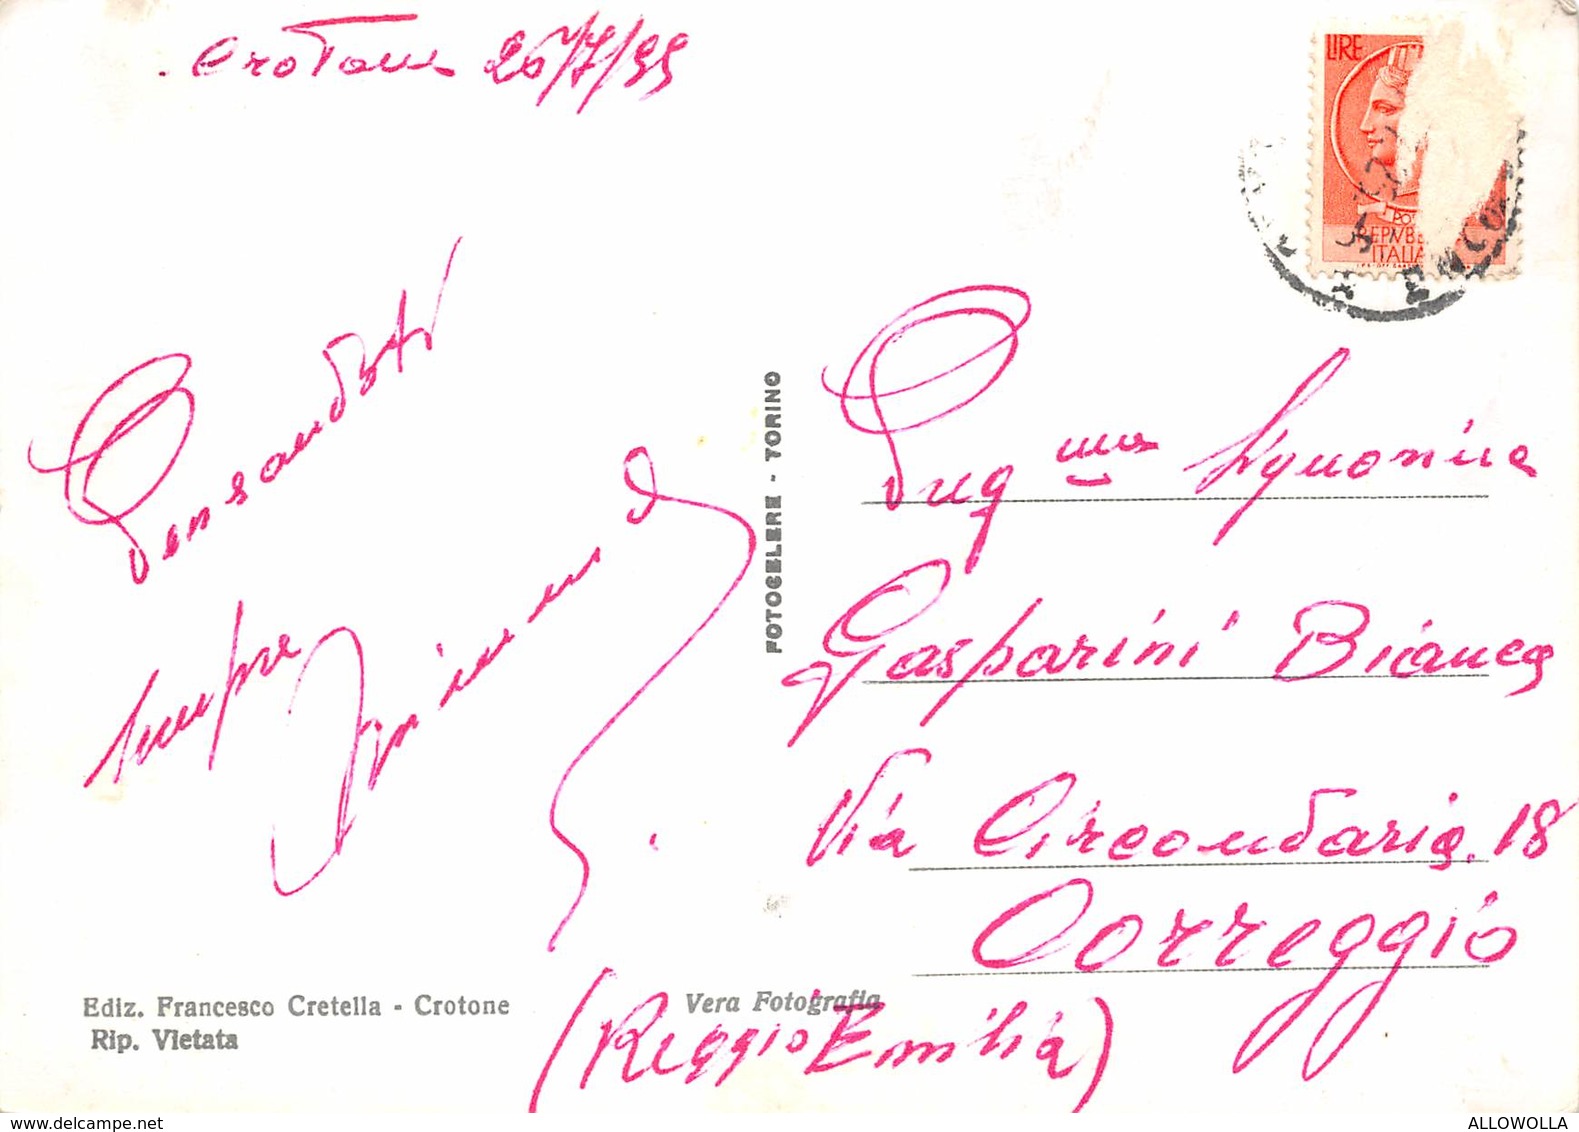 Crotone 26/7/55
LIRE
REPVBB
ITALIA
Pensandoti
sempre
Preg.ma Signorina
Gasparini Bianca
Via Circondaria. 18
Correggio
(Reggio Emilia)
FOTOCELERE - TORINO
Ediz. Francesco Cretella - Crotone
Rip. Vietata
Vera Fotografia
www.delcampe.net
ALLOWOLLA